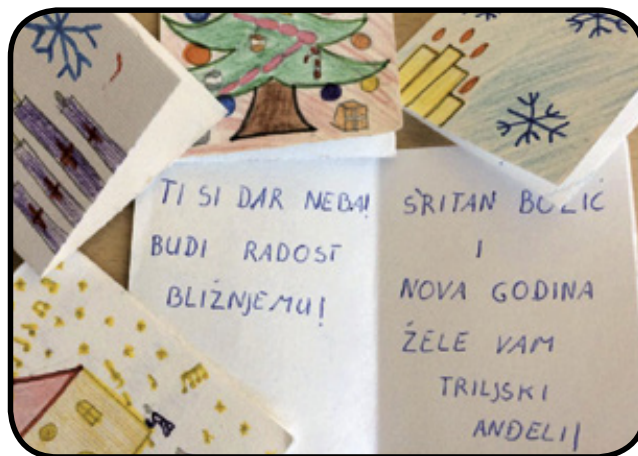 TI SI DAR NEBA!
BUDI RADOST
BLIŽNJEMU!
SRITAN BOŽIĆ
I
NOVA GODINA
ŽELE VAM
TRILJSKI
ANĐELI!